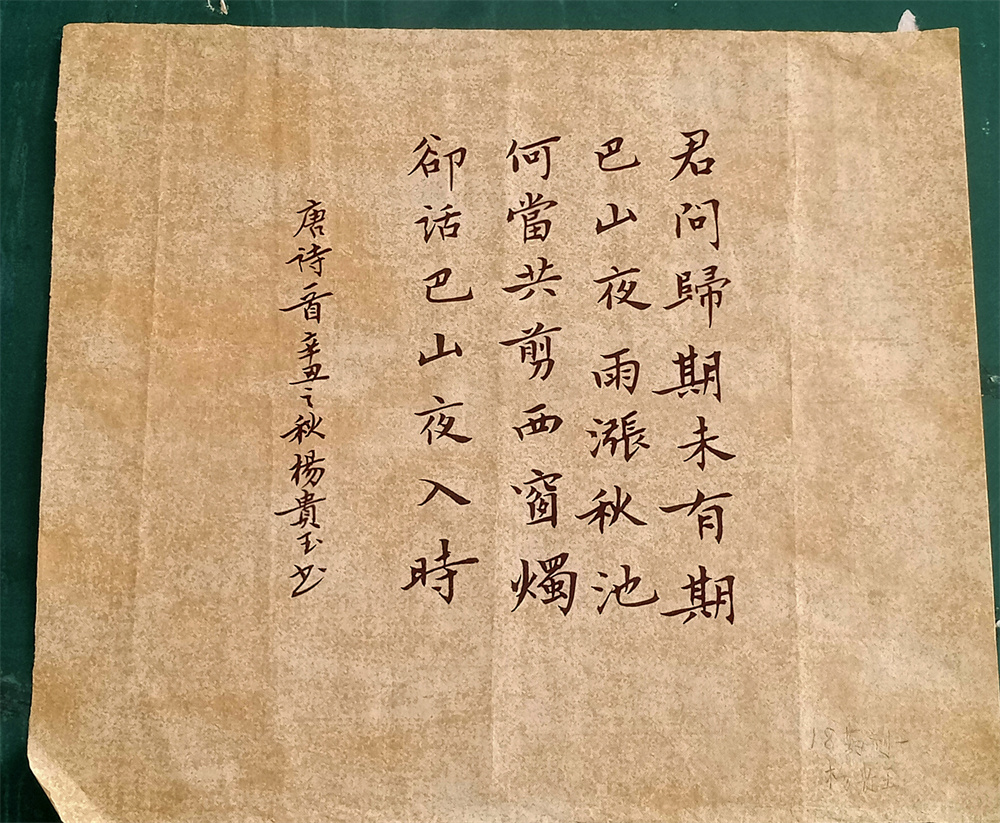 君问歸期未有期
巴山夜雨漲秋池
何當共剪西窗燭
卻话巴山夜入時
唐诗一首辛丑之秋楊貴玉书